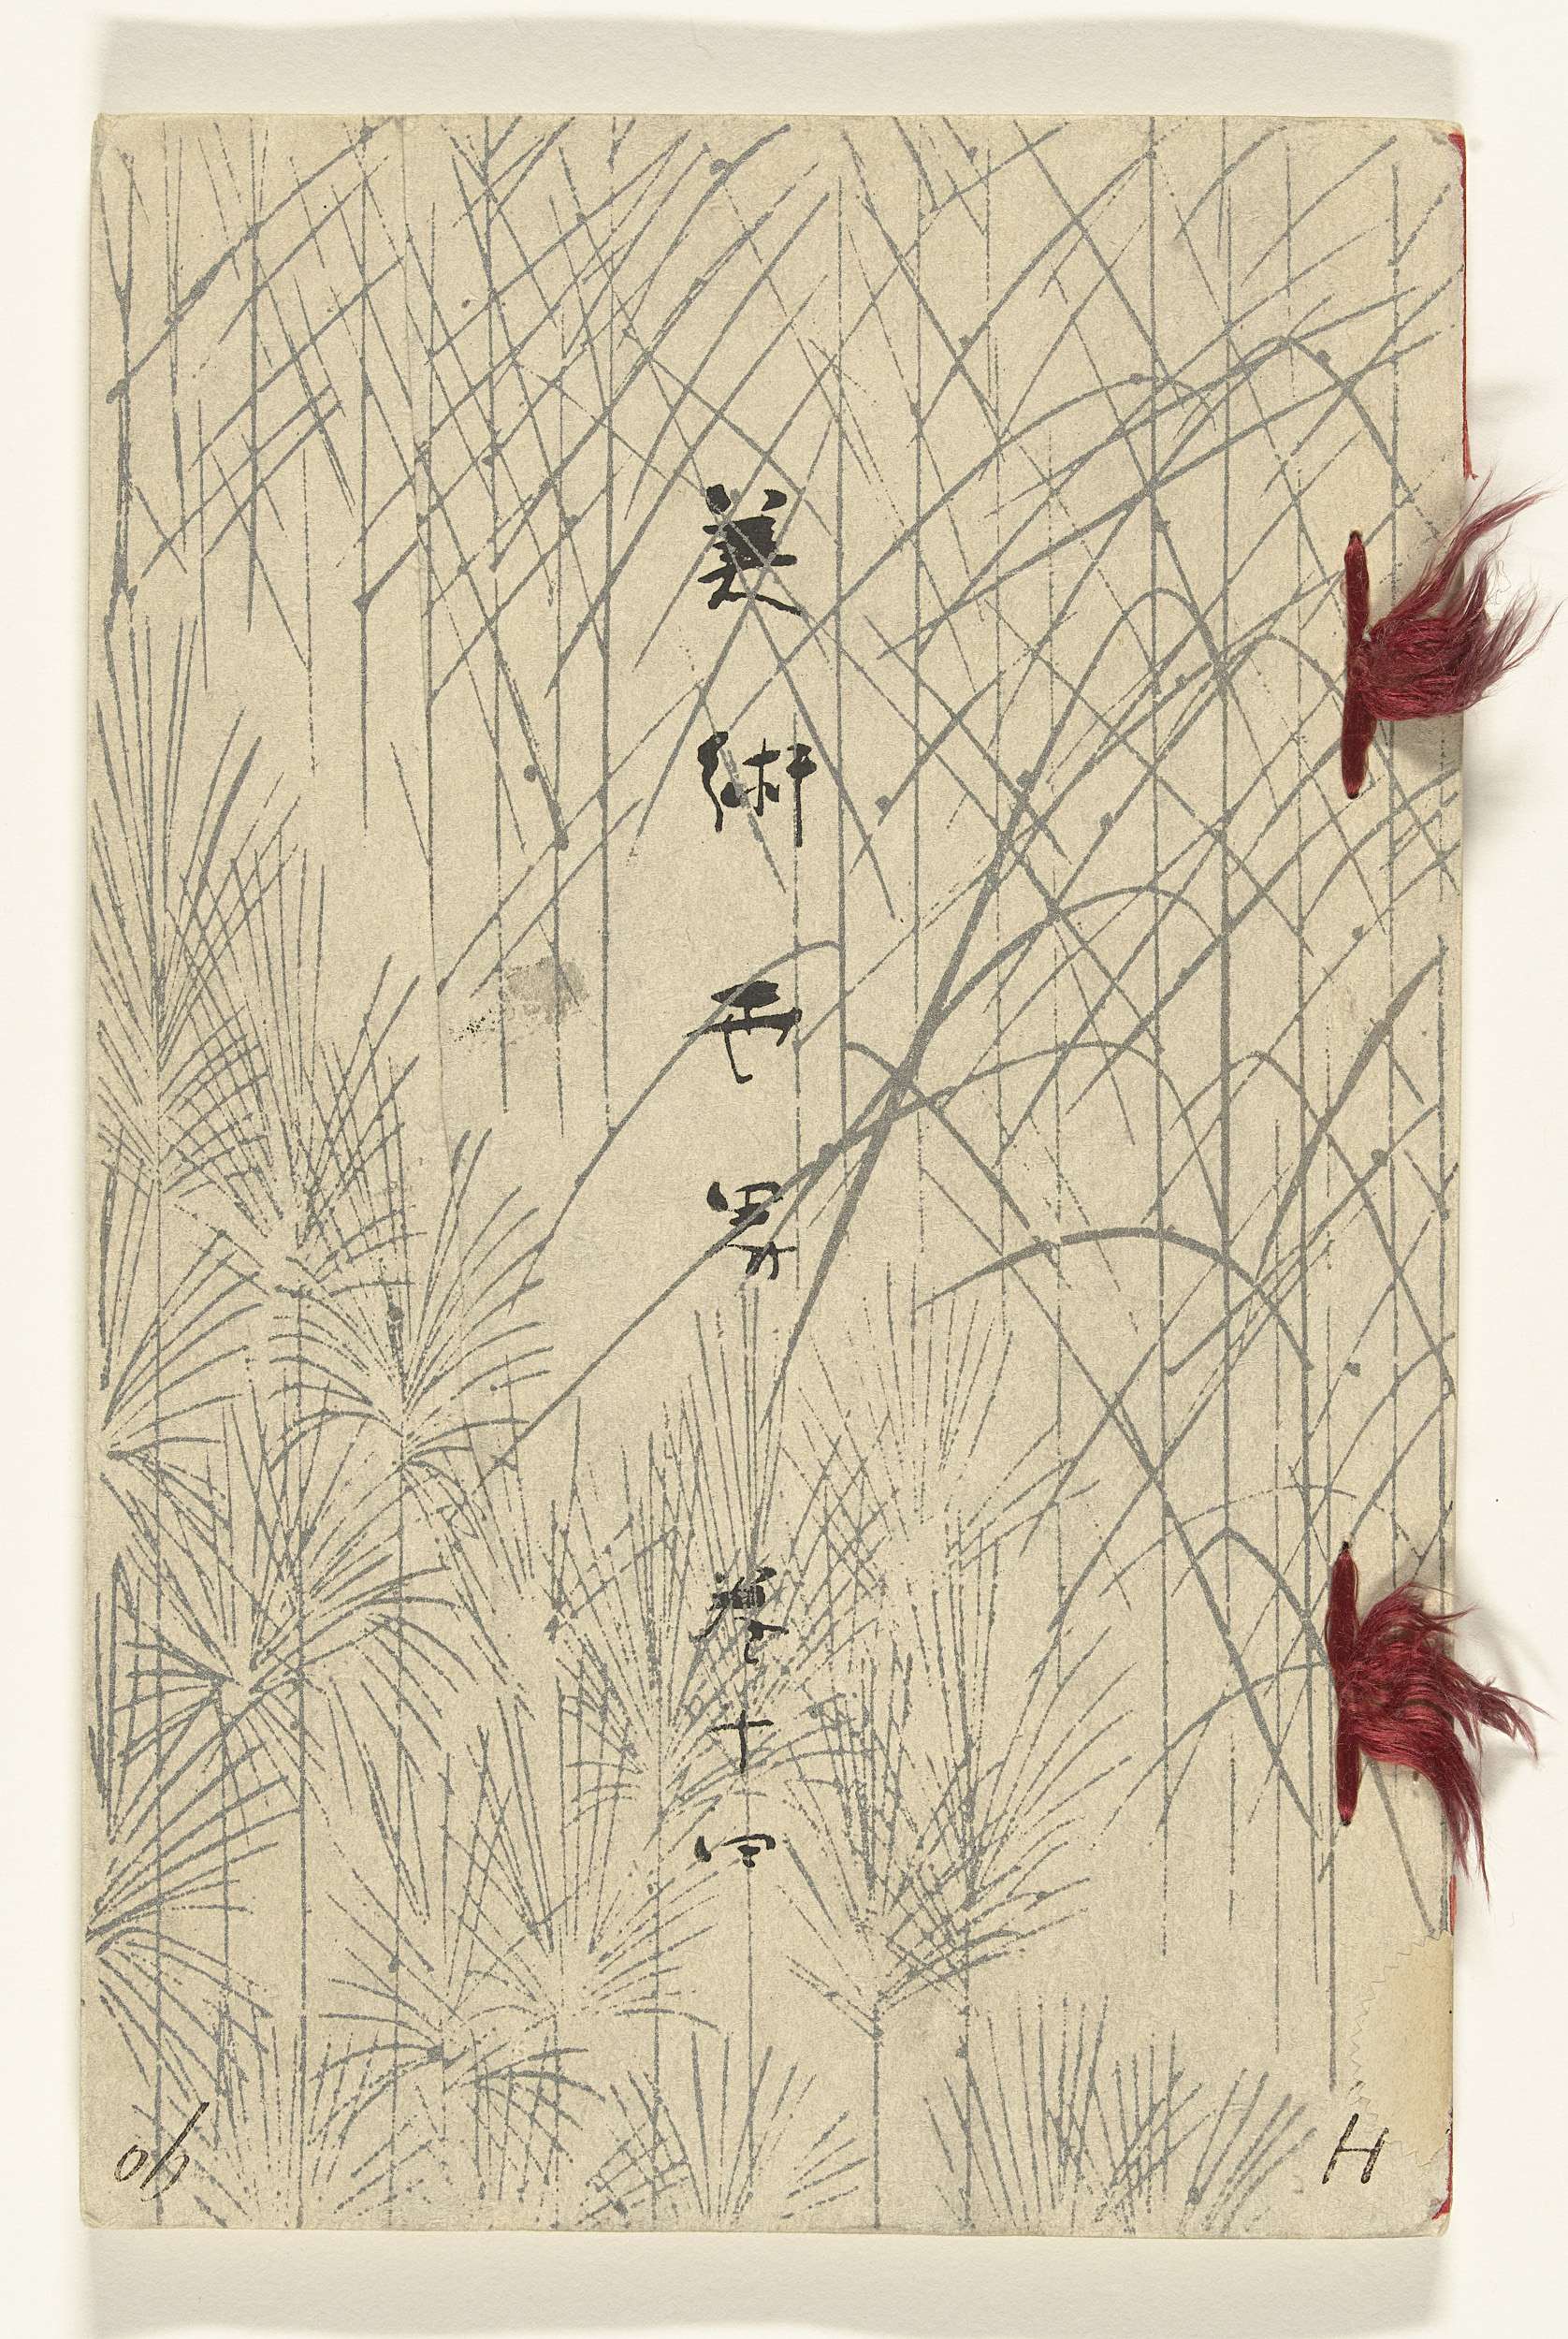 美術世界 巻十四
40
H